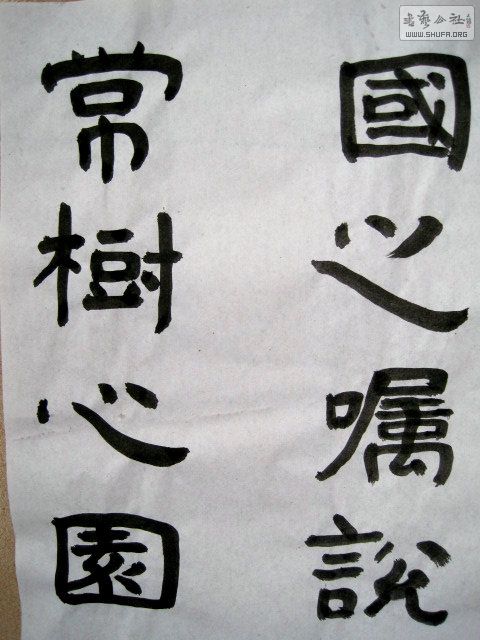 國之嘱說
常樹心園
書藝公社
WWW.SHUFA.ORG